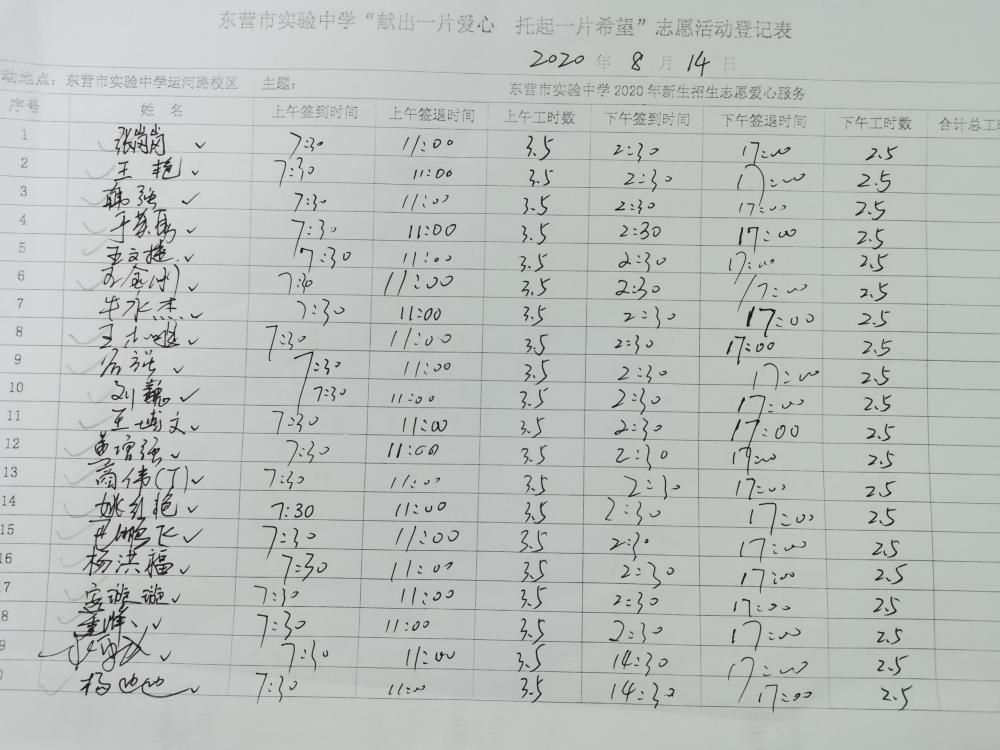 东营市实验中学“献出一片爱心 托起一片希望”志愿活动登记表
2020 年 8 月 14 日
动地点: 东营市实验中学运河路校区 主题: 东营市实验中学2020年新生招生志愿爱心服务
序号 姓 名 上午签到时间 上午签退时间 上午工时数 下午签到时间 下午签退时间 下午工时数 合计总工时
1 张岗岗 ✓ 7:30 11:00 3.5 2:30 17:00 2.5
2 王艳 ✓ 7:30 11:00 3.5 2:30 17:00 2.5
3 韩强 ✓ 7:30 11:00 3.5 2:30 17:00 2.5
4 ✓ 7:30 11:00 3.5 2:30 17:00 2.5
5 王文捷 ✓ 7:30 11:00 3.5 2:30 17:00 2.5
6 ✓ 7:30 11:00 3.5 2:30 17:00 2.5
7 牛永杰 ✓ 7:30 11:00 3.5 2:30 17:00 2.5
8 ✓ 7:30 11:00 3.5 2:30 17:00 2.5
9 ✓ 7:30 11:00 3.5 2:30 17:00 2.5
10 刘巍 ✓ 7:30 11:00 3.5 2:30 17:00 2.5
11 王博文 ✓ 7:30 11:00 3.5 2:30 17:00 2.5
12 黄增强 ✓ 7:30 11:00 3.5 2:30 17:00 2.5
13 商伟(丁) ✓ 7:30 11:00 3.5 2:30 17:00 2.5
14 姚红艳 ✓ 7:30 11:00 3.5 2:30 17:00 2.5
15 鹏飞 ✓ 7:30 11:00 3.5 2:30 17:00 2.5
16 杨洪福 ✓ 7:30 11:00 3.5 2:30 17:00 2.5
7 璇璇 ✓ 7:30 11:00 3.5 2:30 17:00 2.5
8 ✓ 7:30 11:00 3.5 2:30 17:00 2.5
9 ✓ 7:30 11:00 3.5 14:30 17:00 2.5
0 杨 ✓ 7:30 11:00 3.5 14:30 17:00 2.5